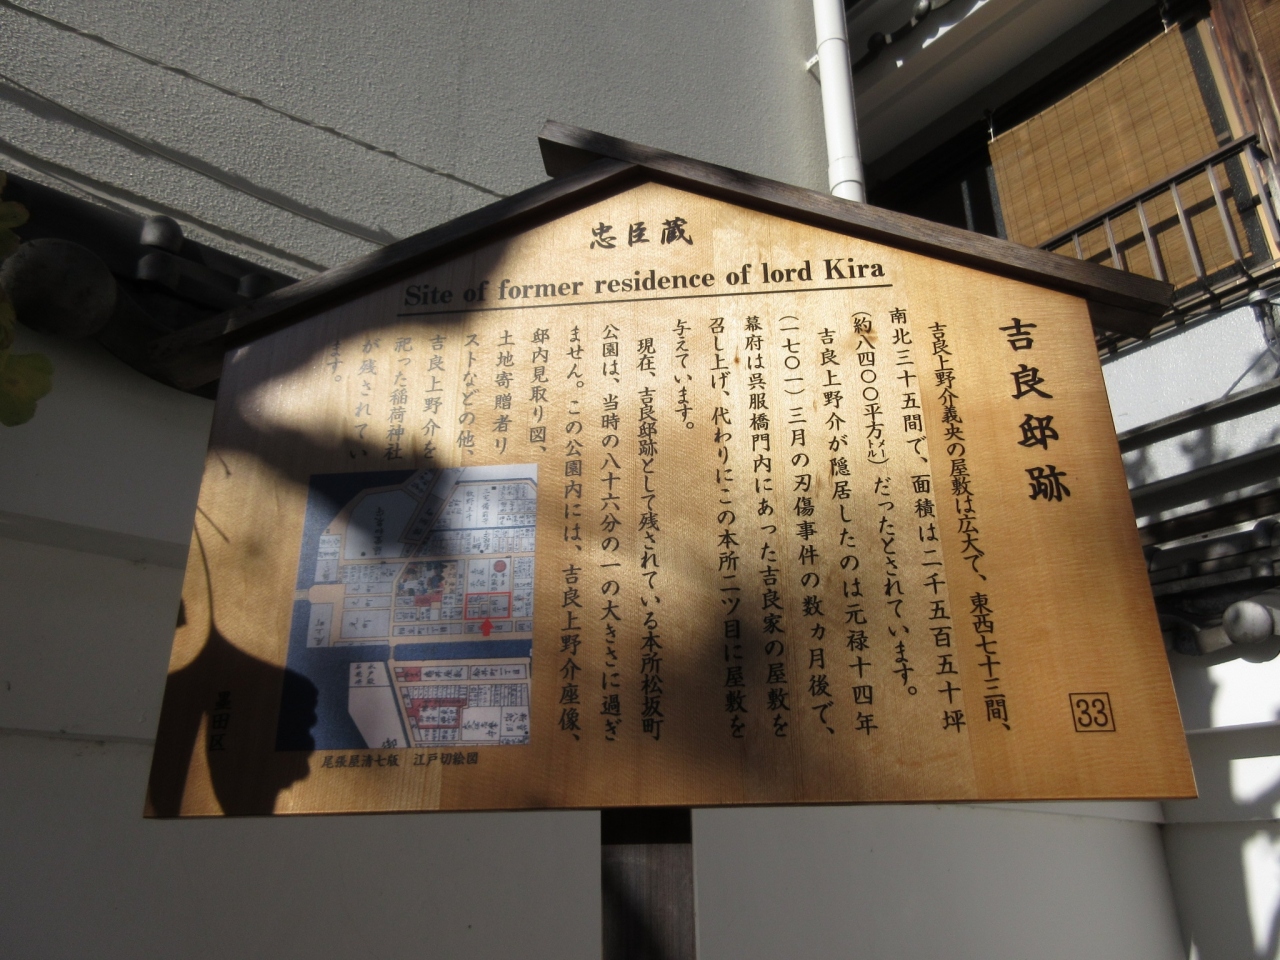 忠臣蔵
Site of former residence of lord Kira
吉良邸跡
33
吉良上野介義央の屋敷は広大で、東西七十三間、
南北三十五間で、面積は二千五百五十坪
（約八四〇〇平方メートル）だったとされています。
吉良上野介が隠居したのは元禄十四年
（一七〇一）三月の刃傷事件の数カ月後で、
幕府は呉服橋門内にあった吉良家の屋敷を
召し上げ、代わりにこの本所二ツ目に屋敷を
与えています。
現在、吉良邸跡として残されている本所松坂町
公園は、当時の八十六分の一の大きさに過ぎ
ません。この公園内には、吉良上野介座像、
邸内見取り図、
土地寄贈者リ
ストなどの他、
吉良上野介を
祀った稲荷神社
が残されてい
ます。
尾張屋清七版　江戸切絵図
墨田区